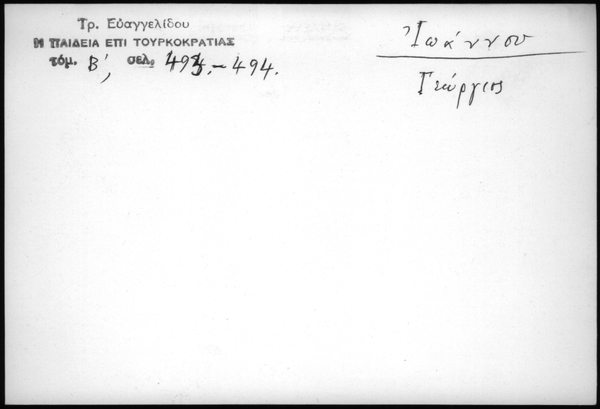 Τρ. Εὐαγγελίδου
Η ΠΑΙΔΕΙΑ ΕΠΙ ΤΟΥΡΚΟΚΡΑΤΙΑΣ
τόμ. Β', σελ. 493.-494.
Ἰωάννου
Γεώργιος